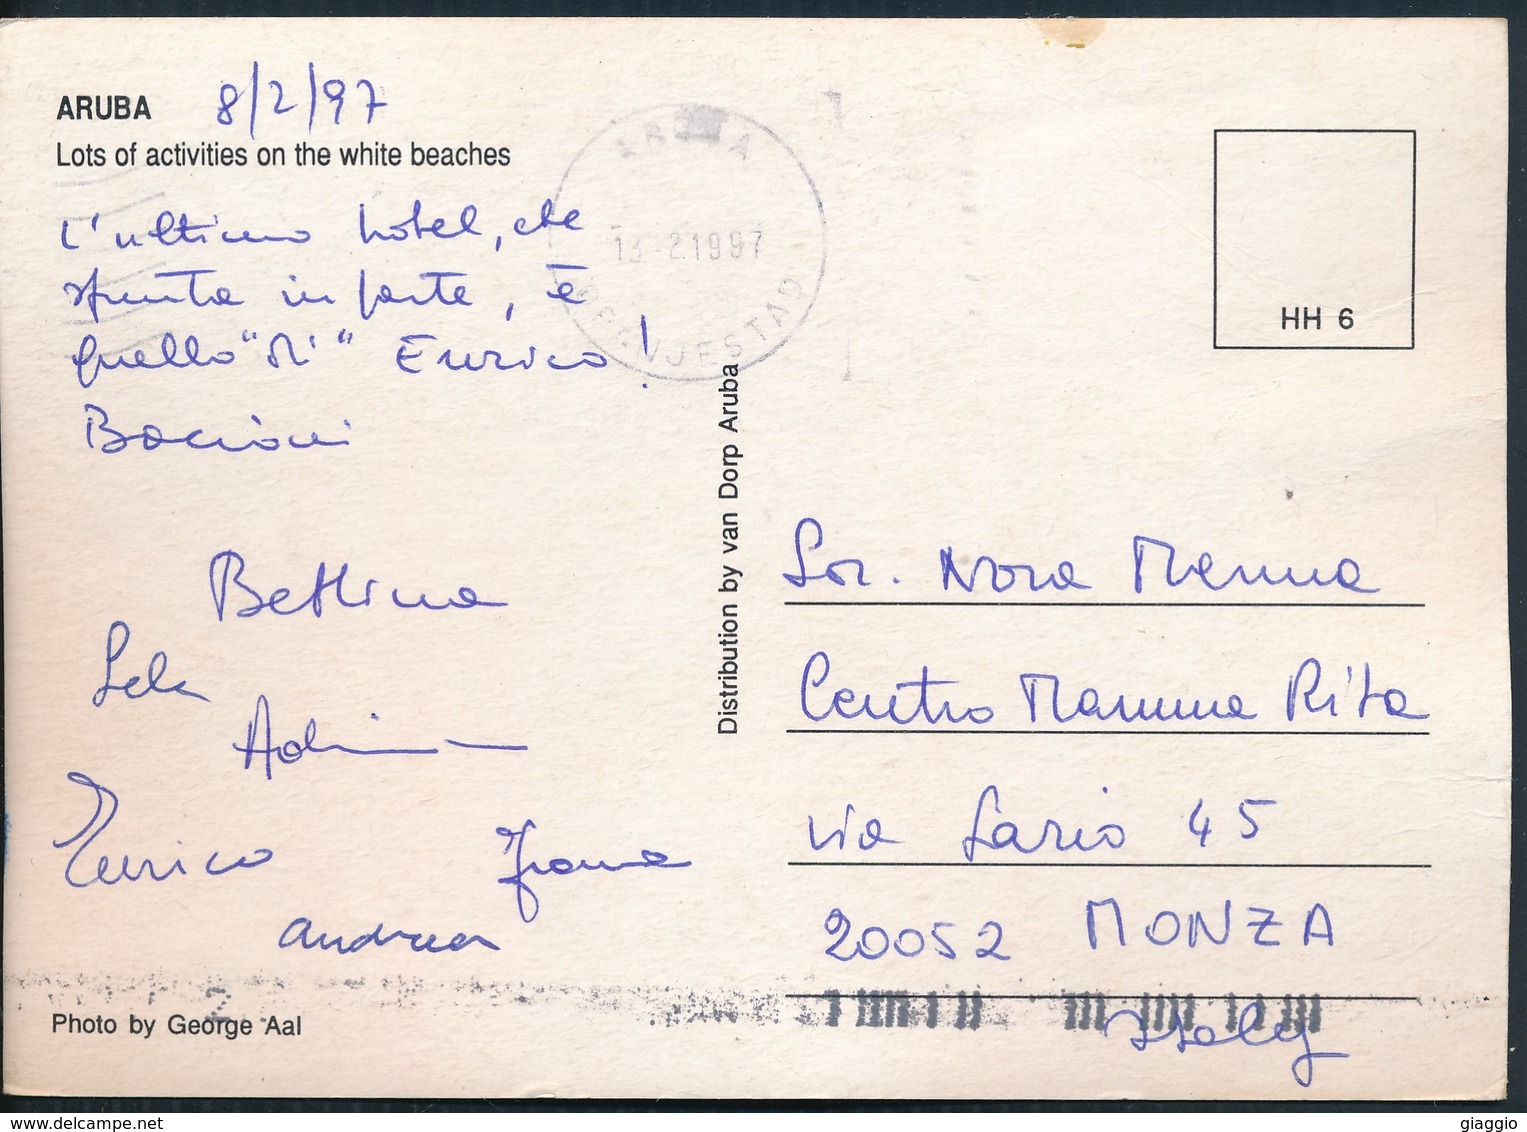 ARUBA 8/2/97
Lots of activities on the white beaches
L'ultimo hotel, che
spunta in parte, è
quello "di" Enrico!
Bacioni
Bettina
Lela
Enrico
Franca
andrea
Photo by George Aal
ARUBA
13-2.1997
ORANJESTAD
Distribution by van Dorp Aruba
HH 6
Sor. Nora Menna
Centro Mamma Rita
via Lario 45
20052 MONZA
Italy
delcampe.net
giaggio